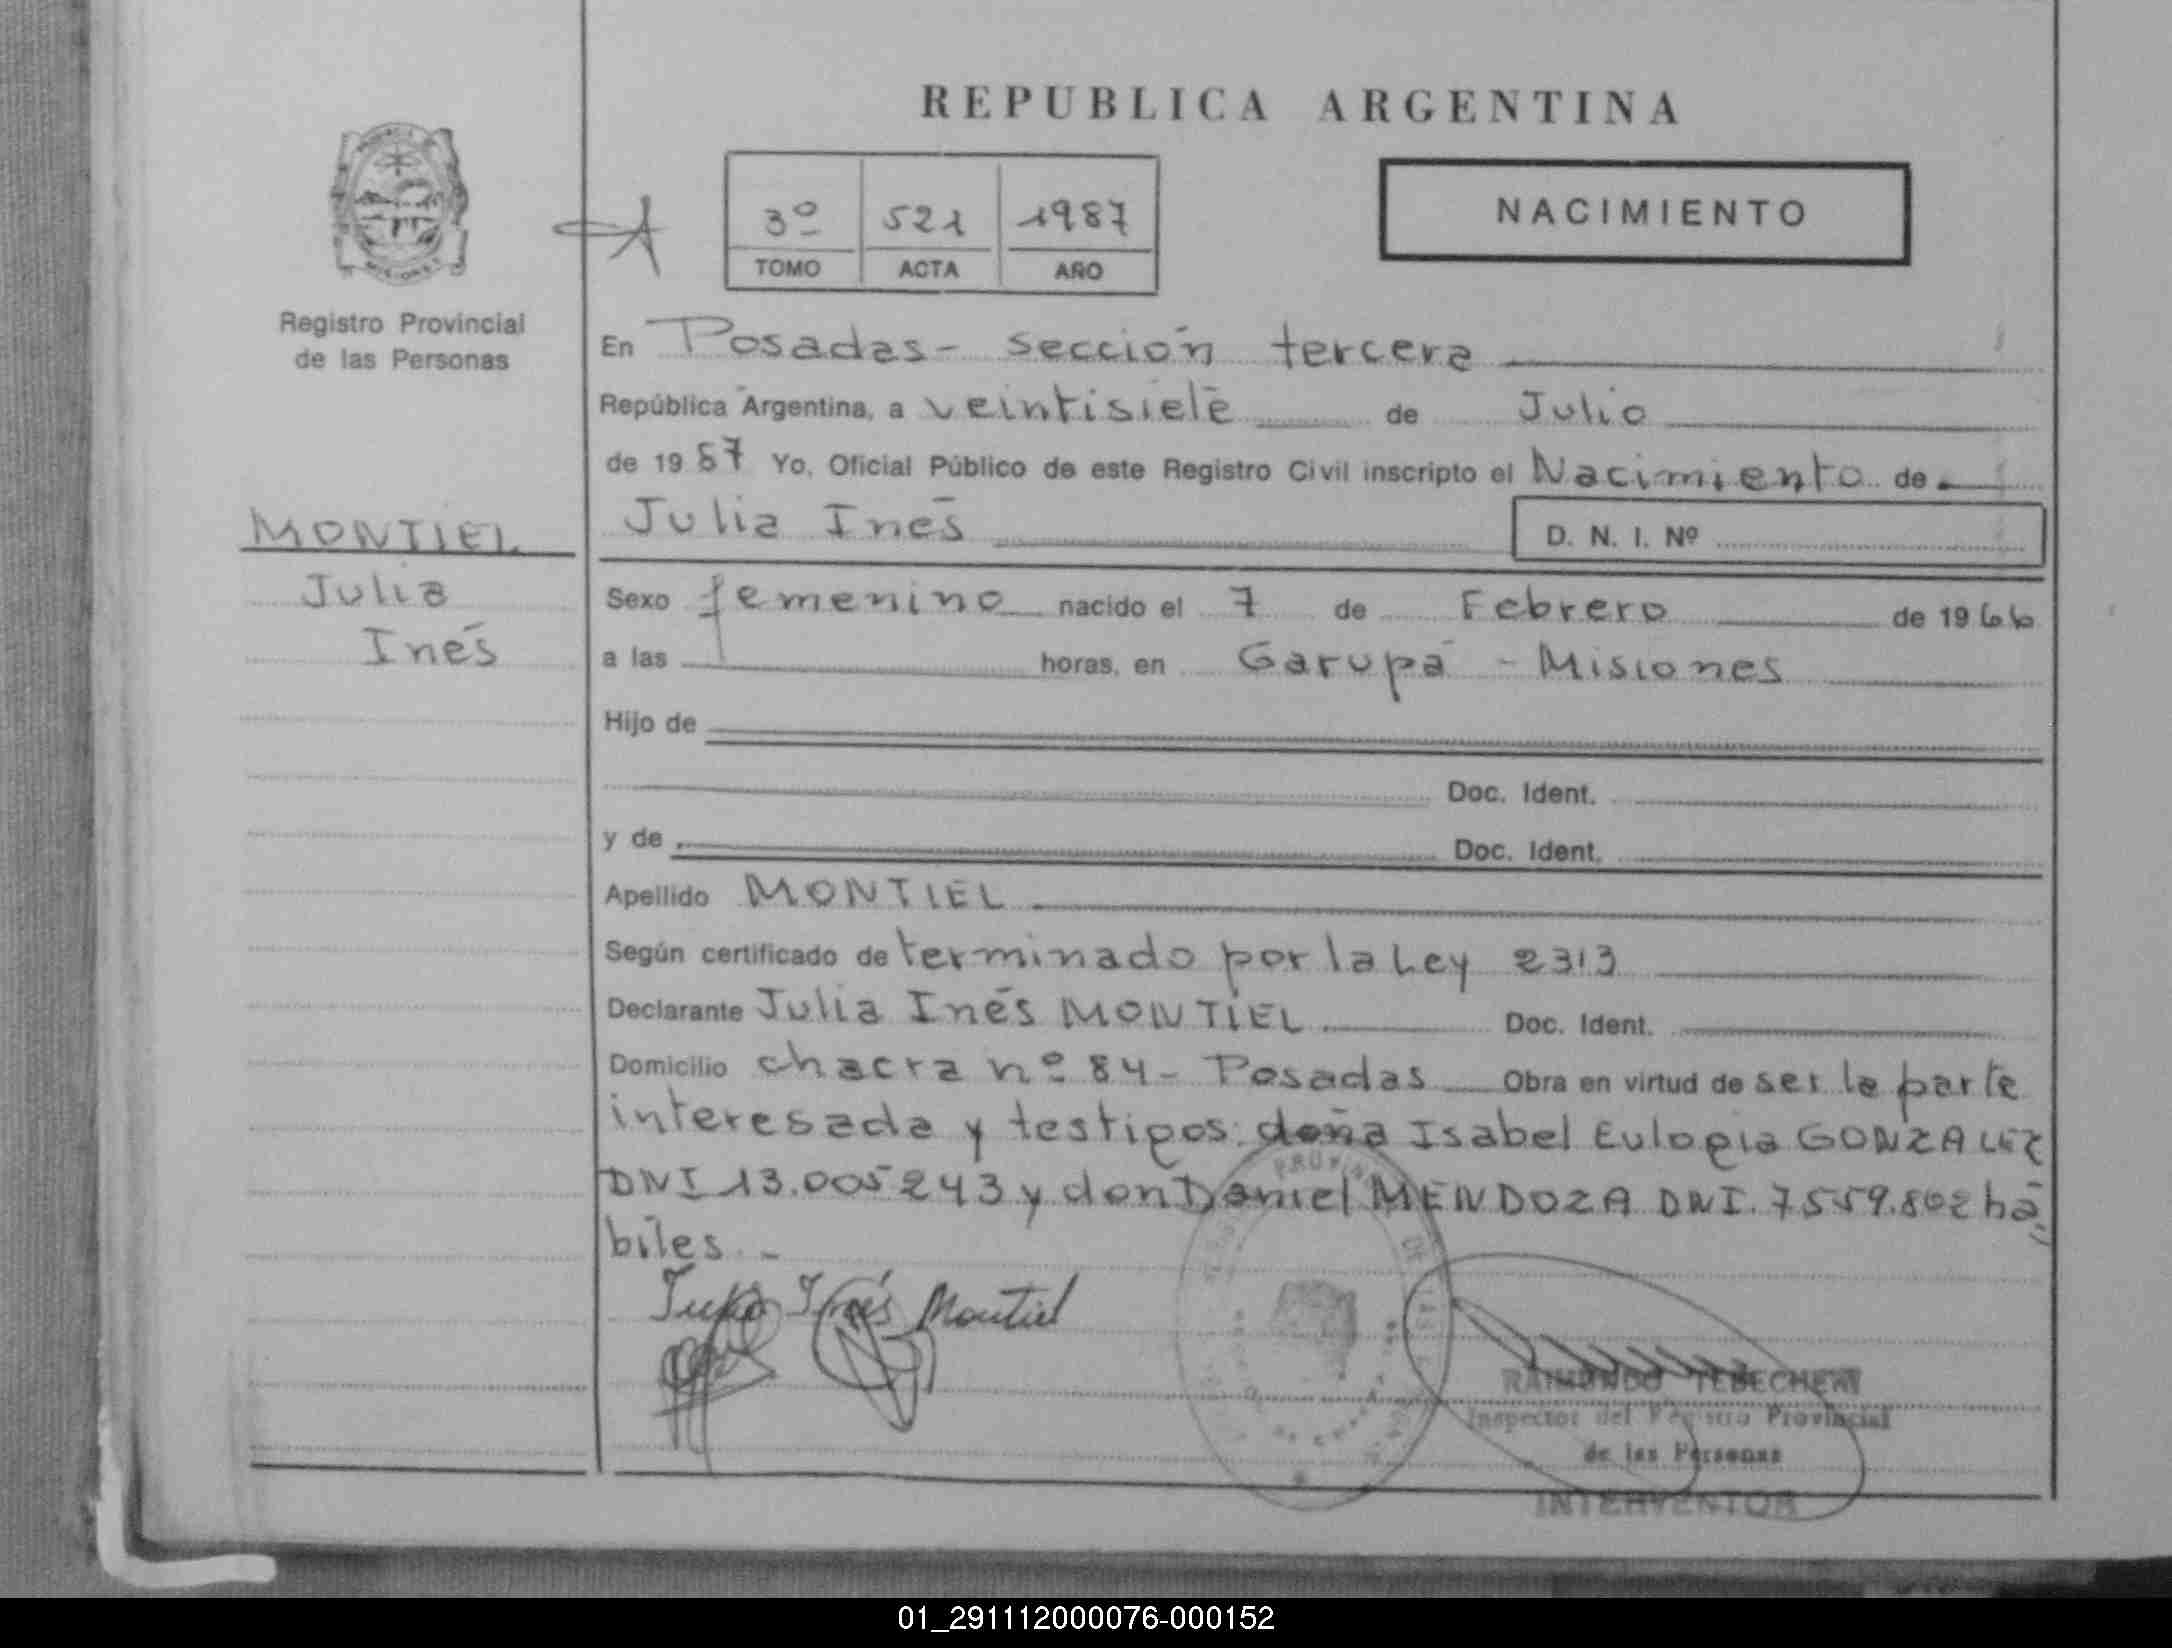 REPUBLICA ARGENTINA
3º 521 1987
TOMO ACTA AÑO
NACIMIENTO
MISIONES
Registro Provincial
de las Personas
En Posadas - sección tercera
República Argentina, a veintisiete de Julio
de 1987 Yo, Oficial Público de este Registro Civil inscripto el Nacimiento de
Julia Inés D. N. I. Nº
MONTIEL
Julia
Inés
Sexo femenino nacido el 7 de Febrero de 1966
a las horas, en Garupá - Misiones
Hijo de
Doc. Ident.
y de Doc. Ident.
Apellido MONTIEL
Según certificado de terminado por la Ley 2313
Declarante Julia Inés MONTIEL Doc. Ident.
Domicilio chacra nº 84 - Posadas Obra en virtud de ser la parte
interesada y testigos: doña Isabel Eulogia GONZALEZ
DNI 13.005243 y don Daniel MENDOZA DNI. 7559.802 há
biles. -
Julia Inés Montiel
RAIMUNDO
Inspector del Registro Provincial
de las Personas
INTERVENTOR
01_291112000076-000152